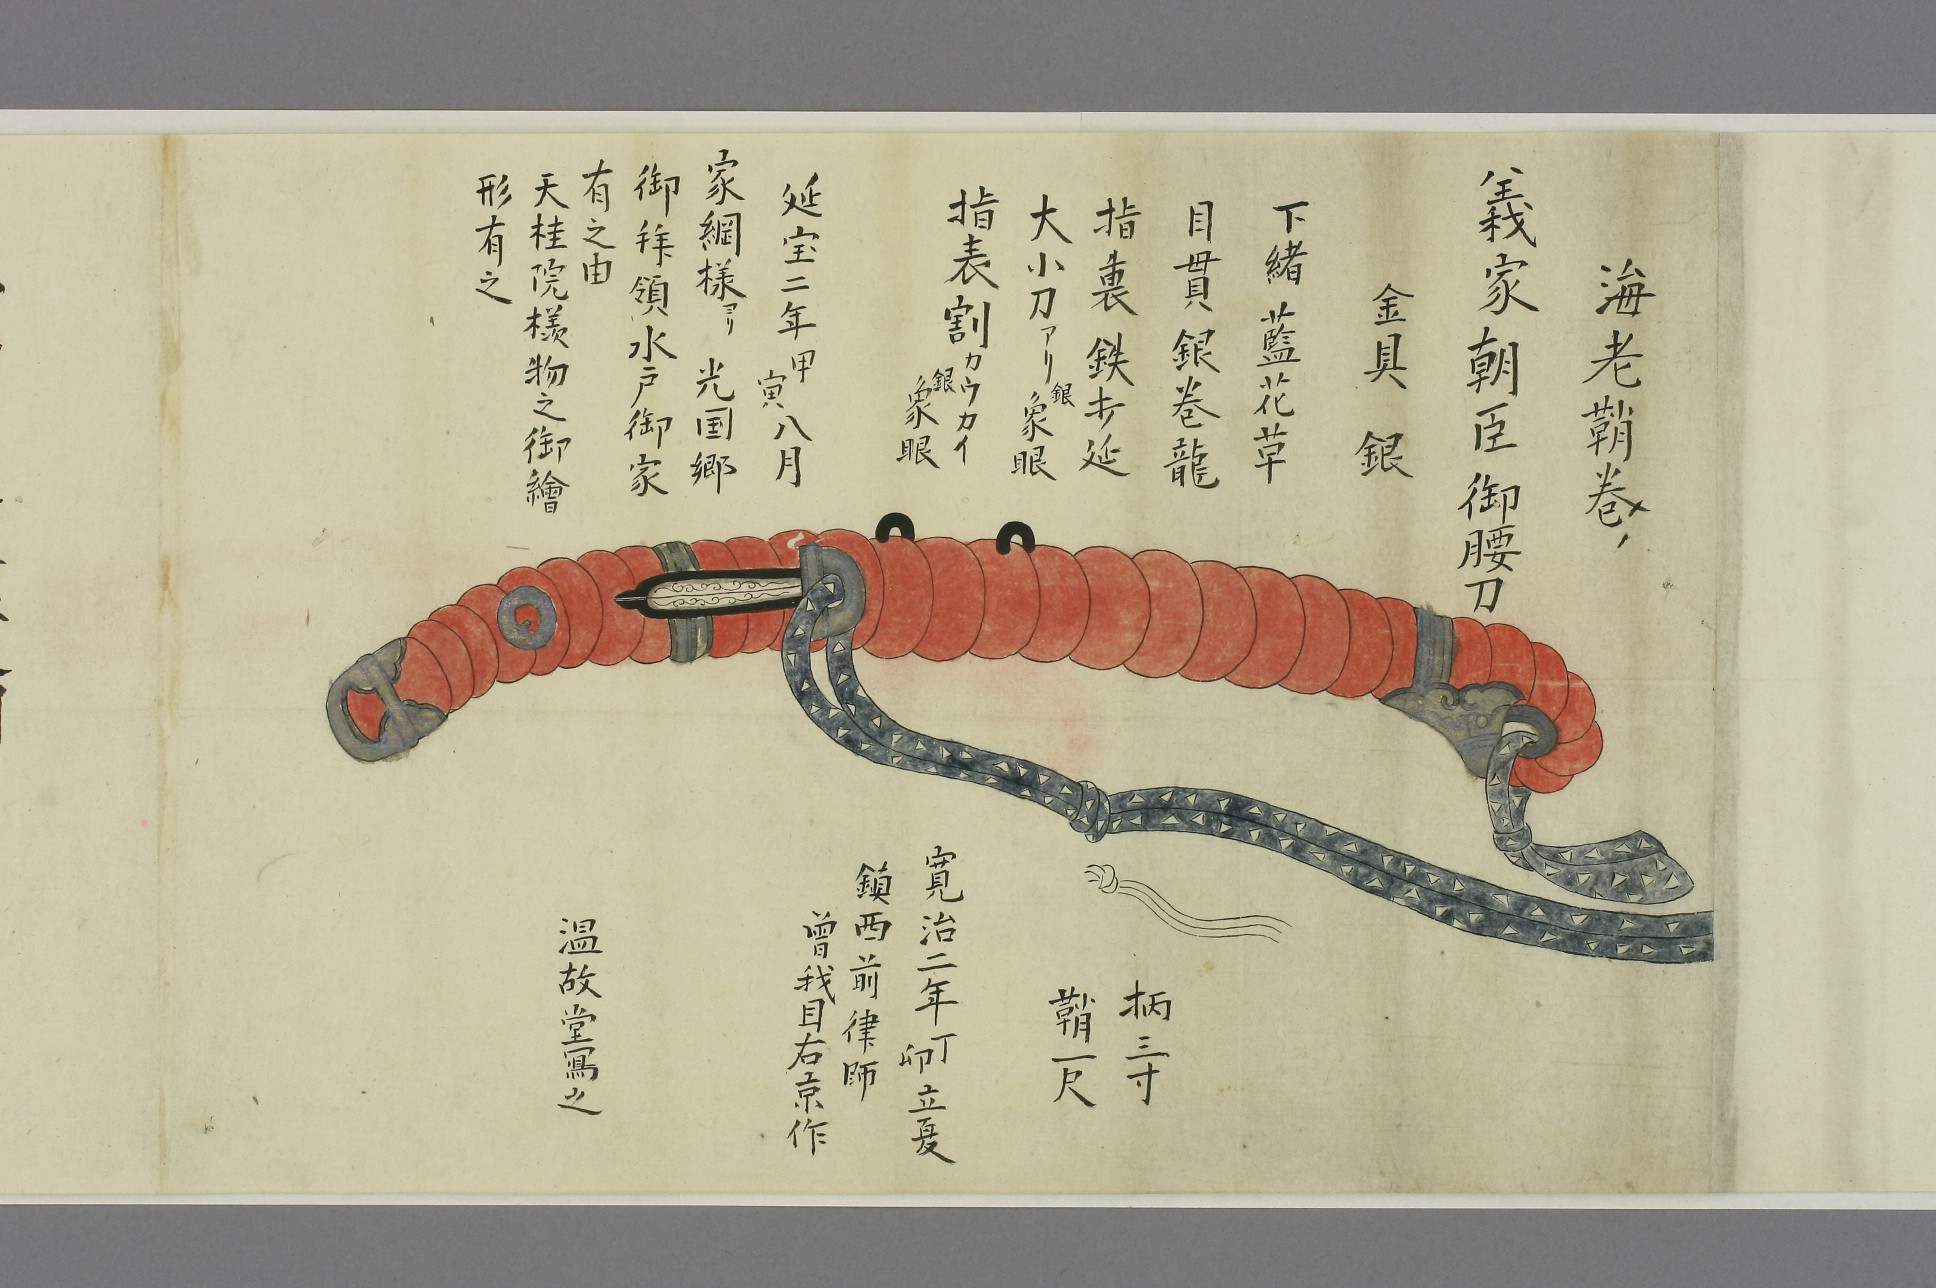 海老鞘巻
義家朝臣御腰刀
金具 銀
下緒 藍花草
目貫 銀巻龍
指裏 鉄打延
大小刀アリ 銀象眼
指表割カウカイ 銀象眼
延宝二年甲寅八月
家綱様ヨリ 光国郷
御拝領水戸御家
有之由
天桂院様物之御繪
形有之
柄三寸
鞘一尺
寛治二年丁卯立夏
鎮西前律師
曽我目右京作
温故堂寫之